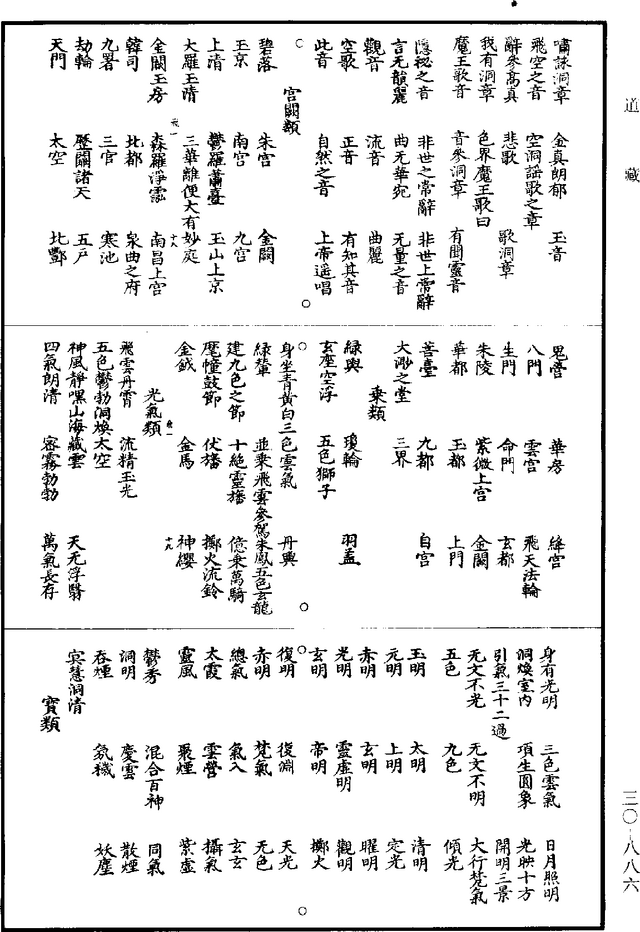 道藏
嘯詠洞章　金真朗郁　玉音
飛空之音　空洞謠歌之章
辭參高真　悲歌　歌洞章
我有洞章　色界魔王歌曰
魔王歌音　音參洞章　有聞靈音
隱祕之音　非世之常辭　非世上常辭
言无韻麗　曲无華宛　无量之音
觀音　流音　曲麗
空歌　正音　有知其音
此音　自然之音　上帝遥唱
宮闕類
碧落　朱宫　金闕
玉京　南宫　九宫
上清　鬱羅蕭臺　玉山上京
大羅玉清　三華離便大有妙庭
金闕玉房　森羅淨泓　南昌上宫
韓司　北都　泉曲之府
九署　三官　寒池
劫輪　歷關諸天　五戶
天門　太空　北酆
鬼營　華房　絳宫
八門　雲宫　飛天法輪
生門　命門　玄都
朱陵　紫微上宫　金闕
華都　玉都　上門
菩臺　九都　自宫
大渺之堂　三界
乘類
綠輿　瓊輪　羽盖
玄座空浮　五色獅子
身坐青黄白三色雲氣　丹輿
綠輦　並乘飛雲參駕朱鳳五色玄龍
建九色之節　十絕靈旛　億乘萬騎
麾幢鼓節　伏旛　擲火流鈴
金鉞　金馬　神纓
光氣類
飛雲丹霄　流精玉光
五色鬱勃洞煥太空
神風靜嘿山海藏雲　天无浮翳
四氣朗清　密霧勃勃　萬氣長存
身有光明　三色雲氣　日月照明
洞煥室内　項生圓象　光映十方
引氣三十二過　開明三景
无文不光　无文不明　大行梵氣
五色　九色　傾光
玉明　太明　清明
元明　上明　定光
赤明　玄明　曜明
光明　靈虛明　觀明
玄明　帝明　擲火
復明　復淵　天光
赤明　梵氣　无色
總氣　氣入　玄玄
太霞　雲營　攝氣
靈風　聚煙　紫虛
鬱秀　混合百神　同氣
洞明　慶雲　散煙
吞煙　氛穢　妖塵
冥慧洞清
寶類
三〇-八八六